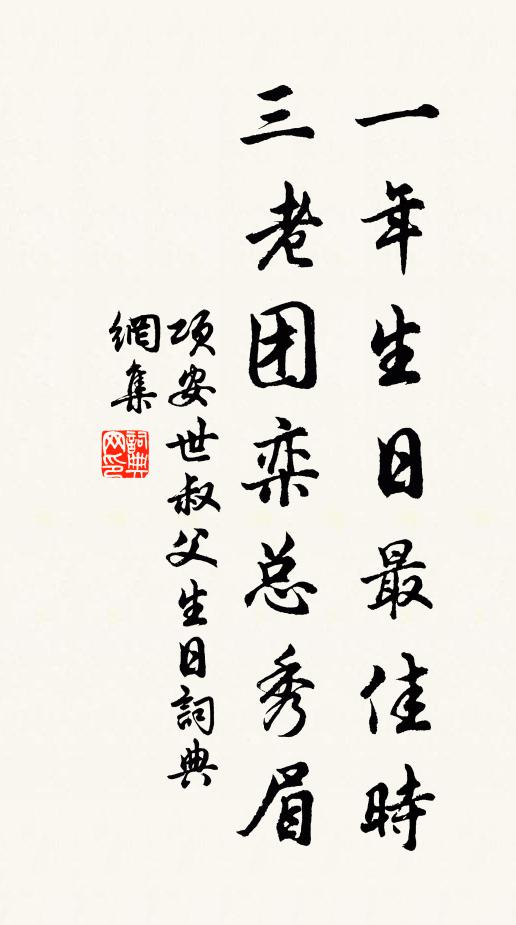 一年生日最佳時
三老团栾总秀眉
项安世叔父生日詞典
網集
詞典
网印